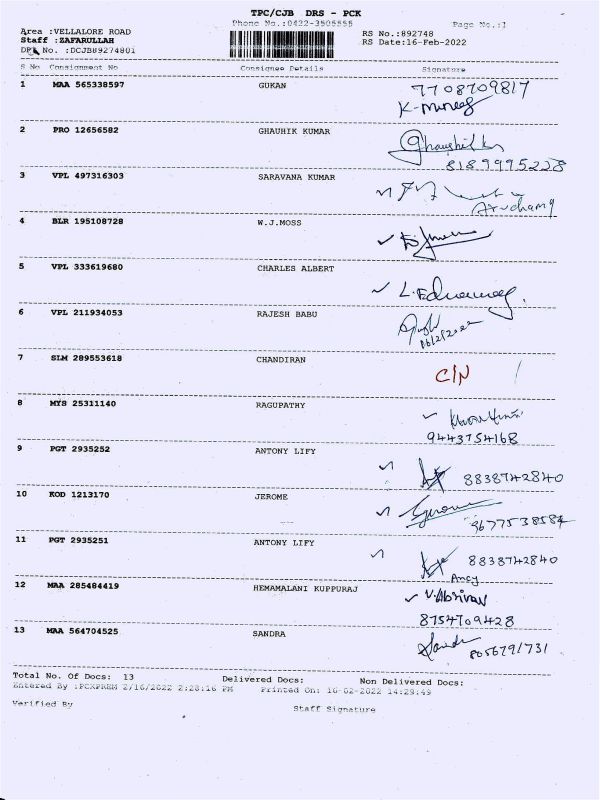 TPC/CJB DRS - PCK
Phone No.:0422-3505555
Page No.:1
Area :VELLALORE ROAD
Staff :ZAFARULLAH
DRS No. :DCJB89274801
RS No.:892748
RS Date:16-Feb-2022
S No Consignment No Consignee Details Signature
1 MAA 565338597 GUKAN 7708709817
2 PRO 12656582 GHAUHIK KUMAR
8189995228
3 VPL 497316303 SARAVANA KUMAR
4 BLR 195108728 W.J.MOSS
5 VPL 333619680 CHARLES ALBERT
6 VPL 211934053 RAJESH BABU
16/2/2022
7 SLM 289553618 CHANDIRAN C/N
8 MYS 25311140 RAGUPATHY
9443754168
9 PGT 2935252 ANTONY LIFY 8838742840
10 KOD 1213170 JEROME
9677538584
11 PGT 2935251 ANTONY LIFY 8838742840
Ancy
12 MAA 285484419 HEMAMALANI KUPPURAJ
8754709428
13 MAA 564704525 SANDRA
Total No. Of Docs: 13 Delivered Docs: Non Delivered Docs:
Entered By :PCKPREM 2/16/2022 2:28:16 PM Printed On: 16-02-2022 14:29:49
Verified By Staff Signature